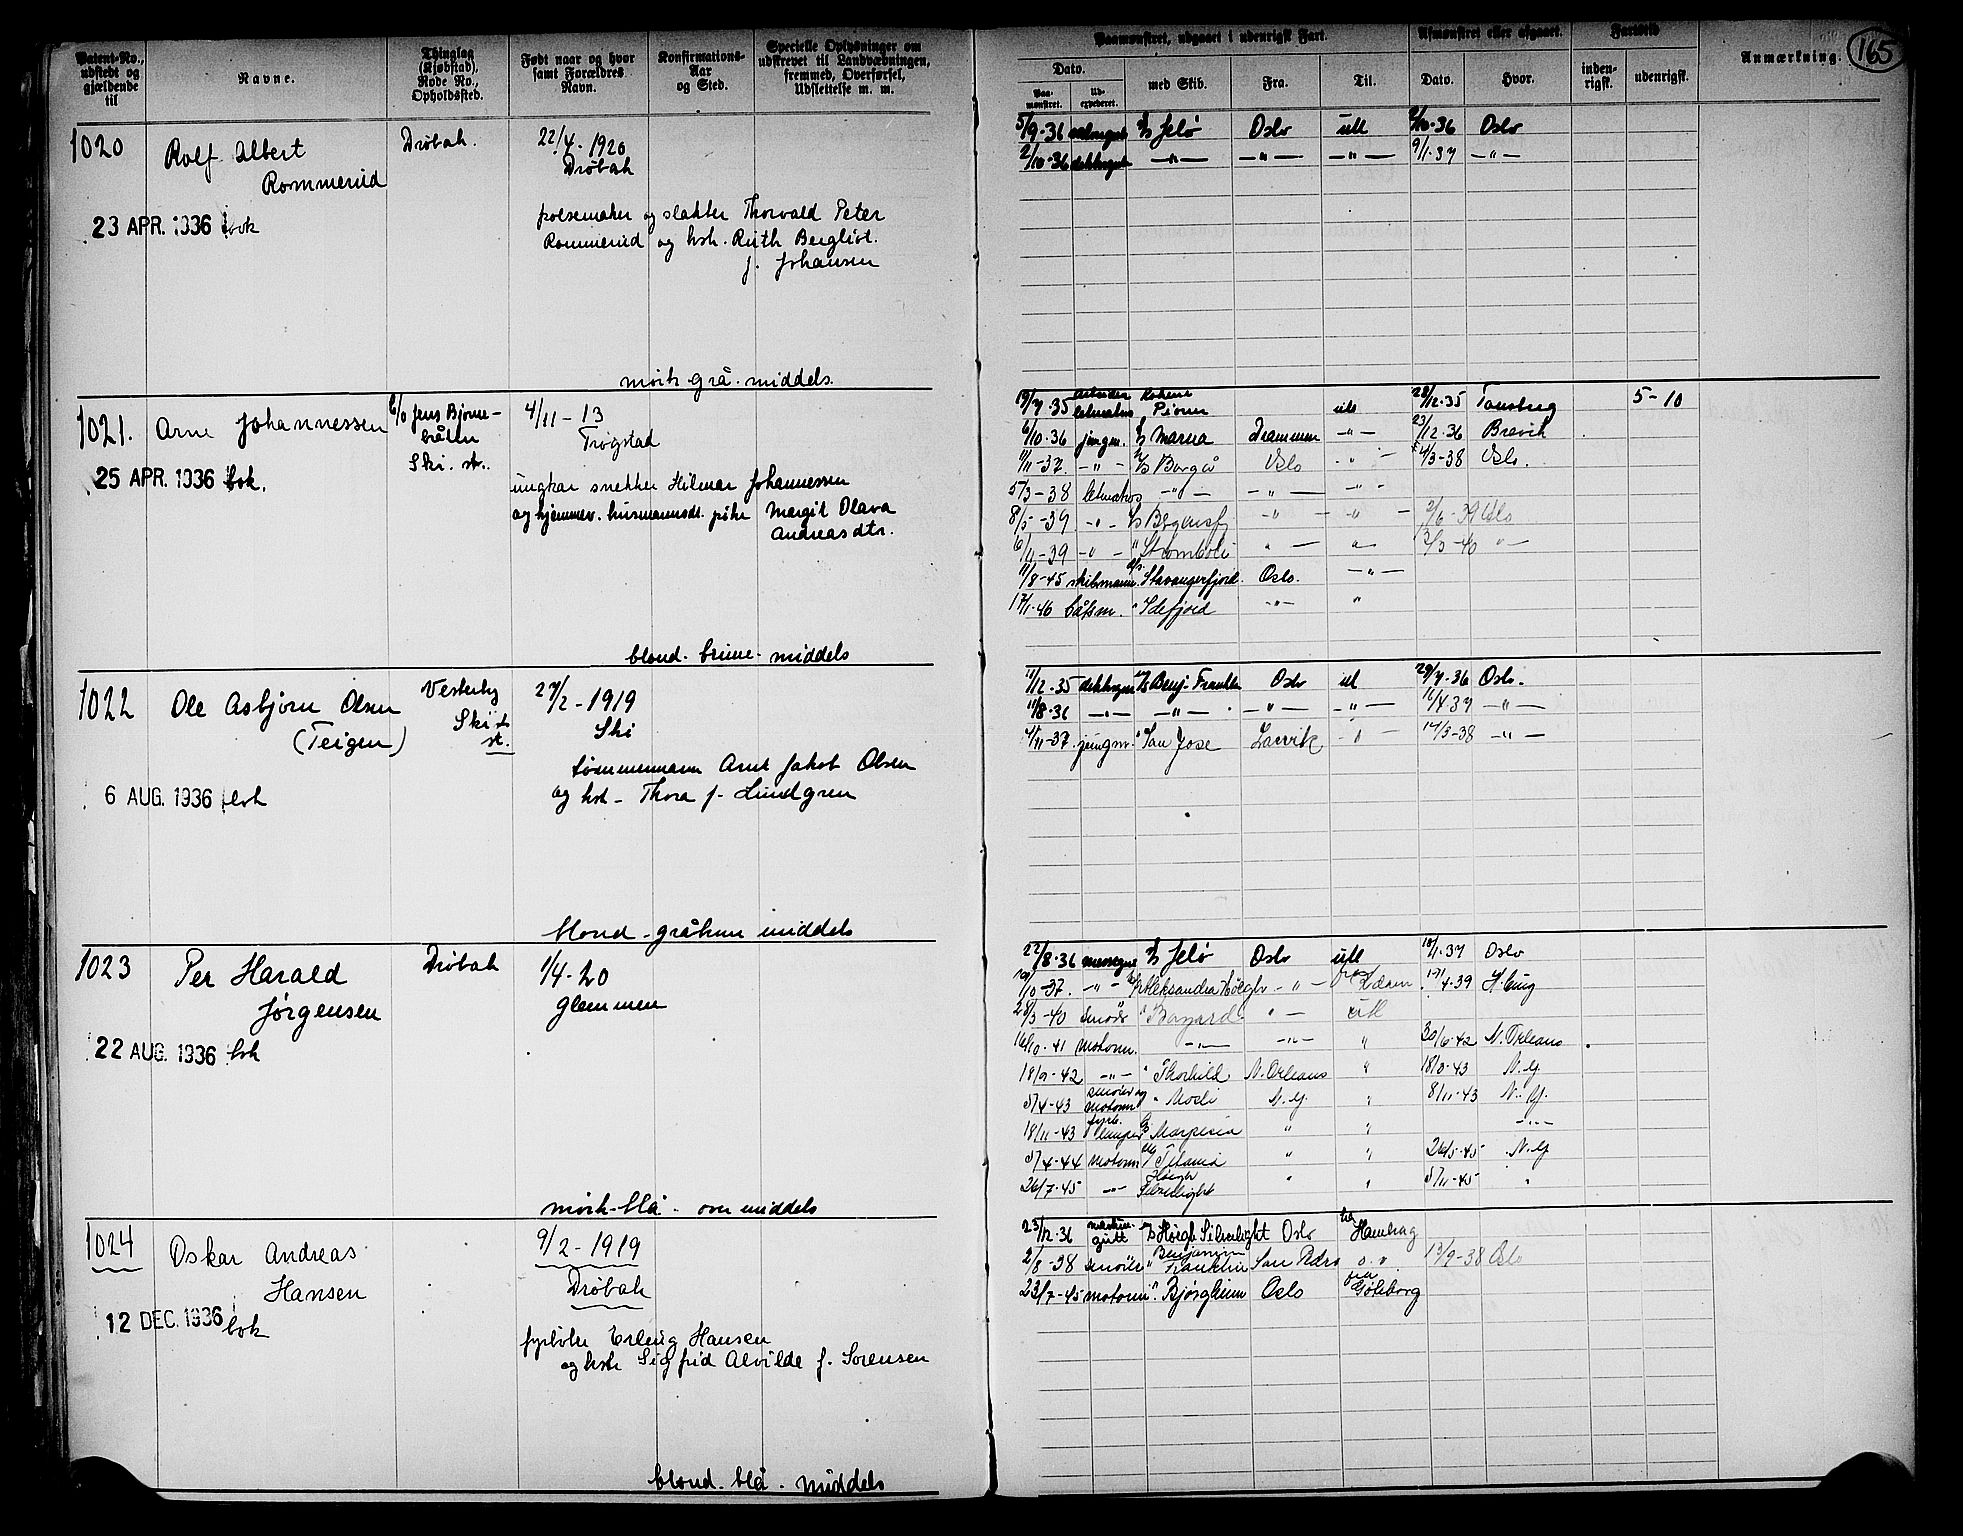 165
Patent-No., udstedt og gjældende til
Navne.
Thinglag (Kjøbstad), Rode No., Opholdssted.
Født naar og hvor samt Forældres Navn.
Konfirmations-Aar og Sted.
Specielle Oplysninger om udskrevet til Landværningen, fremmed, Overførsel, Udslettelse m. m.
Paamønstret, udgaaet i udenrigsk Fart.
Dato.
Paamønstret.
Udexpederet.
med Skib.
Fra.
Til.
Afmønstret eller afgaaet.
Dato.
Hvor.
Fartstid
indenrigsk.
udenrigsk.
Anmærkning.
1020
Rolf Albert
Rommerud
Drøbak.
22/4-1920
Drøbak
23 APR. 1936 bok
pølsemaker og slakter Thorvald Peter
Rommerud og hst. Ruth Bergliot.
f. Johansen
mørk grå. middels.
5/9-36 Jelø Oslo utl 2/10-36 Oslo
2/10-36 dekksgut —"— —"— —"— 9/1-37 —"—
1021. Arne Johannessen
c/o Jens Bjørne-
bråten
Ski. st.
4/11-13
Trøgstad
25 APR. 1936 bok.
ungkar snekker Hilmar Johannessen
og hjemmev. husmannsdt. pike Margit Olava
Andreasdtr.
blond. brune. middels
19/7-35 letmatros Pioner utl 28/12-35 Tønsberg 5-10
6/10-36 jungm. Marna Drammen —"— 23/12-36 Brevik
11/11-37. —"— Borgå Oslo —"— 4/3-38 Oslo.
5/3-38 letmatros —"— —"— —"—
8/5-39 —"— Bergensfj —"— —"— 2/6-39 Oslo
6/11-39 —"— " Stromboli " — " 2/3-40 "—
11/8-45 Stavangerfjord. Oslo. —"—
17/1-46 båtsm. " Idefjord —"— "
1022 Ole Asbjørn Olsen
(Teigen)
Vestby
Ski st.
27/2-1919
Ski
6 AUG. 1936 bok
tømmermann Arnt Jakob Olsen
og hst - Thora f. Lundgren
blond - gråbrun middels
11/12-35 dekksgut Benj. Franklin Oslo utl 29/7-36 Oslo.
11/8-36 —"— —"— —"— —"— 16/4-37 —"—
4/11-37. jungm. " San Jose Larvik —"— 17/3-38 —"—
1023 Per Harald
Jørgensen
Drøbak
1/4-20
Glemmen
22 AUG. 1936 bok
mørk-blå. over middels
22/8-36 messegut Jelø Oslo utl 18/1-37 Oslo
—"— Aleksandra Høegh —"— fra 17/1-39
28/3-40 smører " Bajard " — utl
16/10-41 motorm. —"— —"— " 30/6-42 N. Orleans
18/9-42 —"— " Thorhild N. Orleans " 18/3-43 N.Y.
5/4-43 smører og motorm " Mosli N.Y. " 8/11-43 N.Y.
18/11-43 fyrb. lemper Marpesia " " —"—
5/4-44 motorm Titania " " 26/5-45 N.Y
26/7-45 —"— Høegh Silverlight " " 5/11-45 "
1024 Oskar Andreas
Hansen
9/2-1919
Drøbak
12 DEC. 1936 bok
fyrbøter Erling Hansen
og hst Sigfrid Alvilde f. Sørensen
blond. blå. middels
23/12-36 maskingutt Høegh Silverlight Oslo til Hamburg
2/8-38 smører " Benjamin Franklin San Pedro 13/9-38 Oslo
23/7-45 motorm " Bjørgheim Oslo Gøteborg